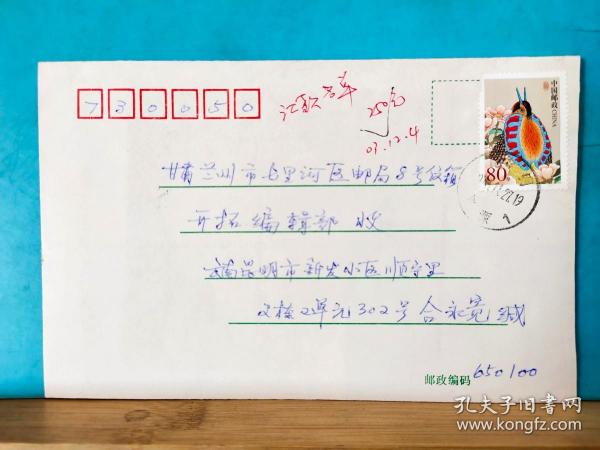 730050
汇款名单
250元
03.12.4
中国邮政
CHINA
80
27.19
甘肃兰州市七里河区邮局8号信箱
开拓编辑部 收
云南昆明市新发小区顺宁里
2单元302号 合永宽 缄
邮政编码 650100
孔夫子旧书网
www.kongfz.com